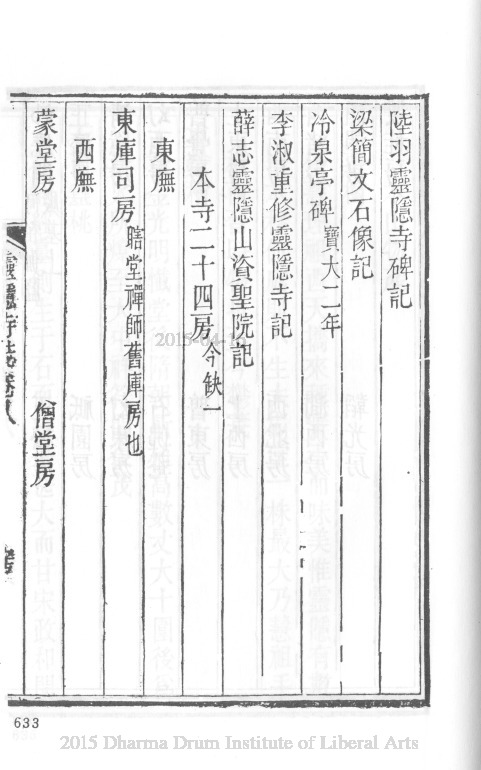 陸羽靈隱寺碑記
梁簡文石像記
冷泉亭碑 寶大二年
李淑重修靈隱寺記
薛志靈隱山資聖院記
本寺二十四房 今缺一
東廡
東庫司房 瞎堂禪師舊庫房也
西廡
蒙堂房 僧堂房
靈隱寺誌卷八
633
2015-04-15
2015 Dharma Drum Institute of Liberal Arts